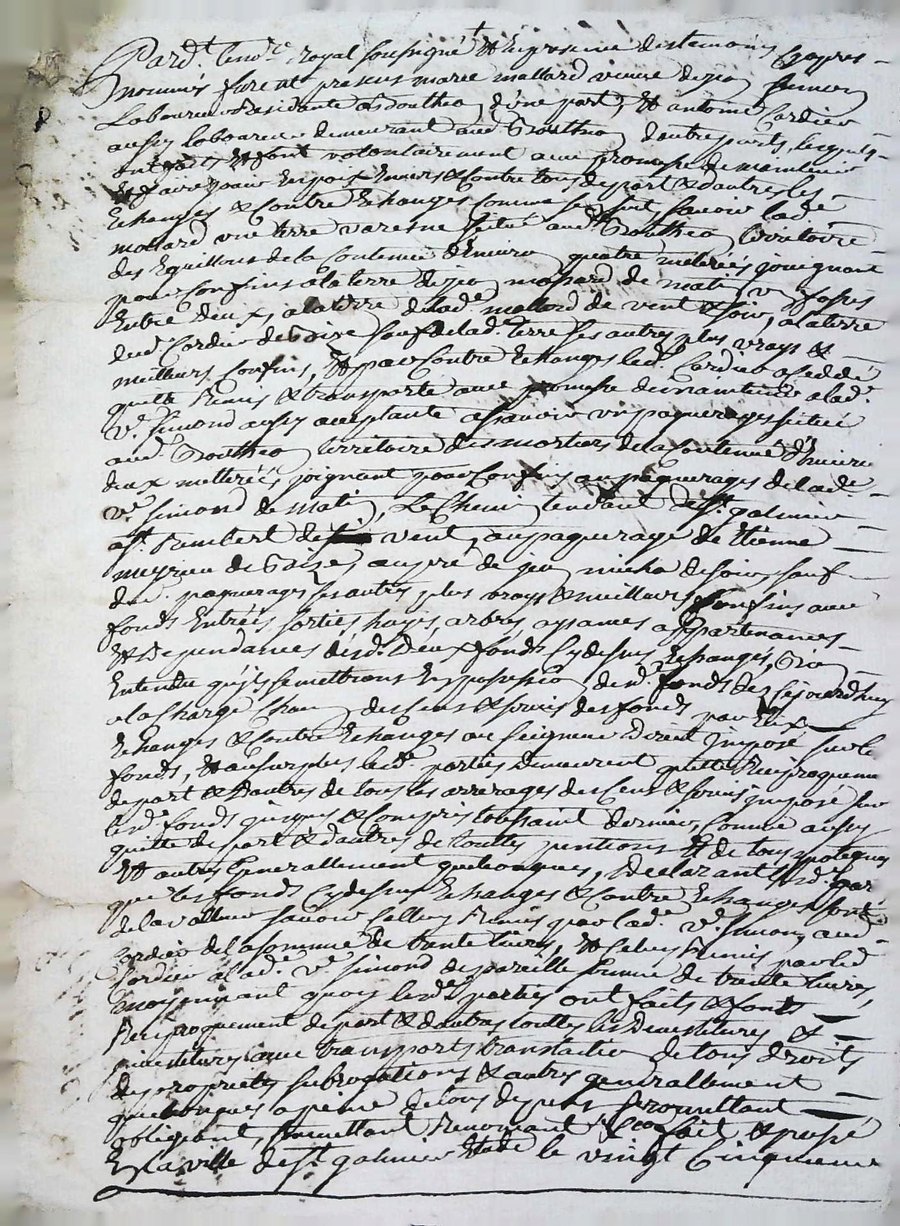 Pard.t le no.re royal soussigné & en presence des temoins cy apres
nommés furent presens marie mallard veuve de jean Simon
Laboureur Residente à Boutheon d'une part, & antoine Cordier
aussy laboureur demeurant aud. Bouthéon d'autres parts, lesquels
ont fait & font volontairement avec promesse de maintenir
& faire jouir En paix Envers & Contre tous de part & d'autres les
Echanges & Contre Echanges comme sensuit, savoir lad.e
mallard une terre varesne scitué aud. Bouthéon territoire
des Eguillons de la Contenue d'Environ quatre meterées joignant
pour confins a la terre de jean massard de matin un fossés
Entre deux, a la terre de lad.e mallard de vent & soir, a la terre
dud. Cordier de bize sauf de lad. terre ses autres plus vrays &
meilleurs confins, & par Contre Echanges led. Cordier a ceddé
quitté Remis & transporté avec promesse de maintenir a lad.
v.e Simond aussy acceptante a savoir un paquerages scitué
aud. Bouthéon territoire des mortiers de la Contenue d'Environ
deux metterées, joignant pour Confins au paquerages de lad.e
v.e Simond de matin, Le Chemin tendant de S.t galmier
a S.t Rambert de vent, au paquerage de Etienne
meyrieu de bize, au pré de jean micha de soir, sauf
dud. paquerages ses autres plus vrays & meilleurs Confins avec
fonds Entrées sorties, hayes, arbres, aysances appartenances
& Dependances desd. Deux fonds cy dessus Echangés, Bien
Entendu qu'ils se mettrons En possession desd. fonds dez cejourd'huy
a la Charge Chacun des Cens & servis des fonds par Eux
Echanges & Contre Echanges au Seigneur Direct Imposé sur le
fonds, & au surplus lesd. parties demeurent quitte Reciproquement
de part & d'autres de tous les arrerages des Cens & servis imposé sur
lesd. fonds jusques & Compris toussaint dernier, comme aussy
quitte de part & d'autres de touttes pentions & de tous ypoteques
& autres Generallement quelconques, Declarant lesd. par
que les fonds Cy dessus Echanges & Contre Echanges sont
de la valleur savoir Celluy Remis par lad.e v.e Simon aud.
Cordier de la somme de trente livres, & Celuy Remis par led.
Cordier a lad.e v.e Simond de pareille somme de trente livres,
moyennant quoy lesd. parties ont faits & font
Reciproquement de part & d'autres touttes les Devestitures &
investitures avec transports translation de tous droits
des proprietés subrogations & autres generallement
quelconques a peine de tous depens promettant
obligeant, soumettant Renonçant & Ce fait & passé
En la ville de S.t galmier Etude le vingt Cinquieme